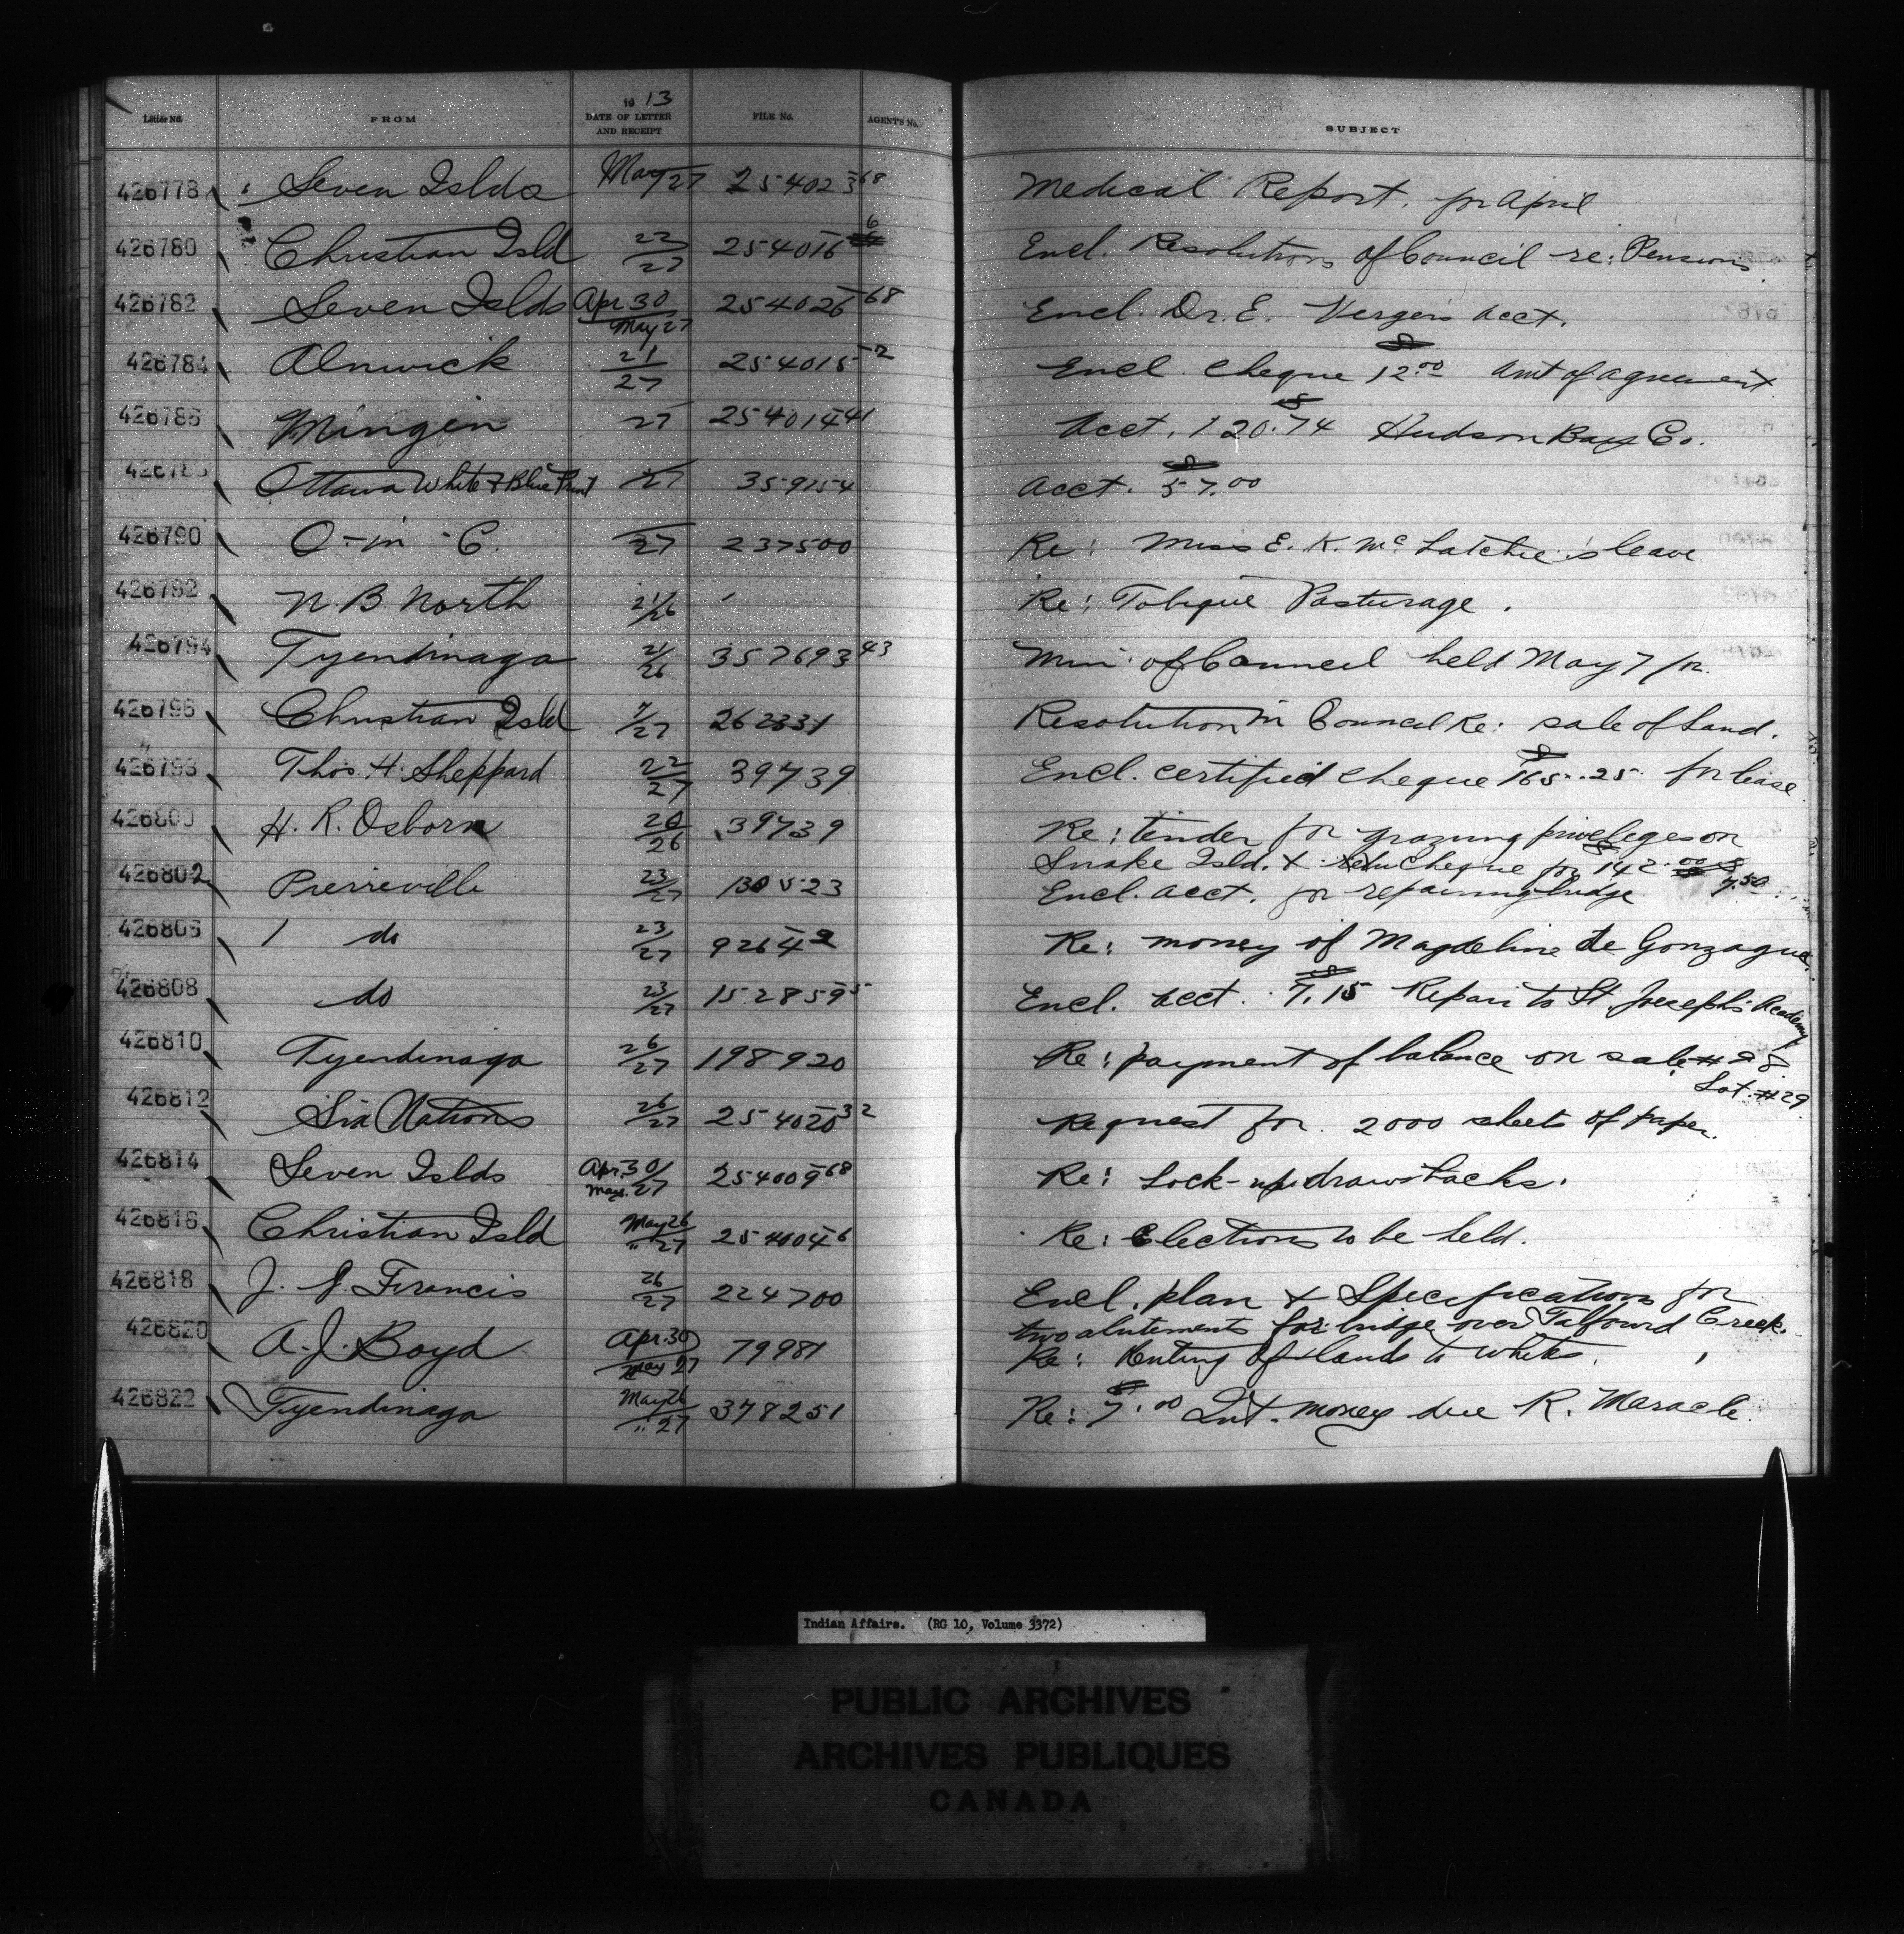 Letter No. FROM 1913 DATE OF LETTER AND RECEIPT FILE No. AGENTS No. SUBJECT
426778 Seven Islds May 27 254023 68 Medical Report for April
426780 Christian Isld 22/27 254016 6 Encl. Resolutions of Council re: Pensions
426782 Seven Islds Apr 30 May 27 254026 68 Encl. Dr. E. Acct.
426784 Alnwick 21/27 254015 52 Encl. Cheque 12.00 Amt of agreement
426786 Mingin 27 254014 41 Acct. 120.74 Hudson Bay Co.
Ottawa White & Blue Print 27 359154 Acct. 57.00
426790 O-in-C. 27 237500 Re: Miss E. K. McLatchie's leave.
426792 N. B. North 21/26 Re: Tobique Pasturage.
426794 Tyendinaga 21/26 357693 43 Min. of Council held May 7
426796 Christian Isld 7/27 262331 Resolution in Council Re: sale of Land.
426798 Thos. H. Sheppard 22/27 39739 Encl. certified cheque $165.25 for lease
426800 H. R. Osborn 20/26 39739 Re: tender for grazing privileges on
Snake Isld. & cheque for $142.00
426802 Pierreville 23/27 130523 Encl. acct. for repairing bridge 7.50
426806 do 23/27 92642 Re: money of Magdeline de Gonzague.
426808 do 23/27 152859 5 Encl. Acct. $7.15 Repair to St. Joseph's Academy
426810 Tyendinaga 26/27 198920 Re: payment of balance on sale #98
Lot #29
426812 Six Nations 26/27 254020 32 Request for 2000 sheets of paper.
426814 Seven Islds Apr. 30/May 27 254009 68 Re: Lock-up drawbacks.
426816 Christian Isld May 26/" 27 254004 6 Re: Elections to be held.
426818 J. J. Francis 26/27 224700 Encl. plan & Specifications for
two abutements for bridge over Talfourd Creek.
426820 A. J. Boyd Apr. 30 May 27 79981 Re: Renting of lands to whites.
426822 Tyendinaga May 26/" 27 378251 Re: $7.00 Int. money due R. Maracle.
Indian Affairs. (RG 10, Volume 3372)
PUBLIC ARCHIVES
ARCHIVES PUBLIQUES
CANADA